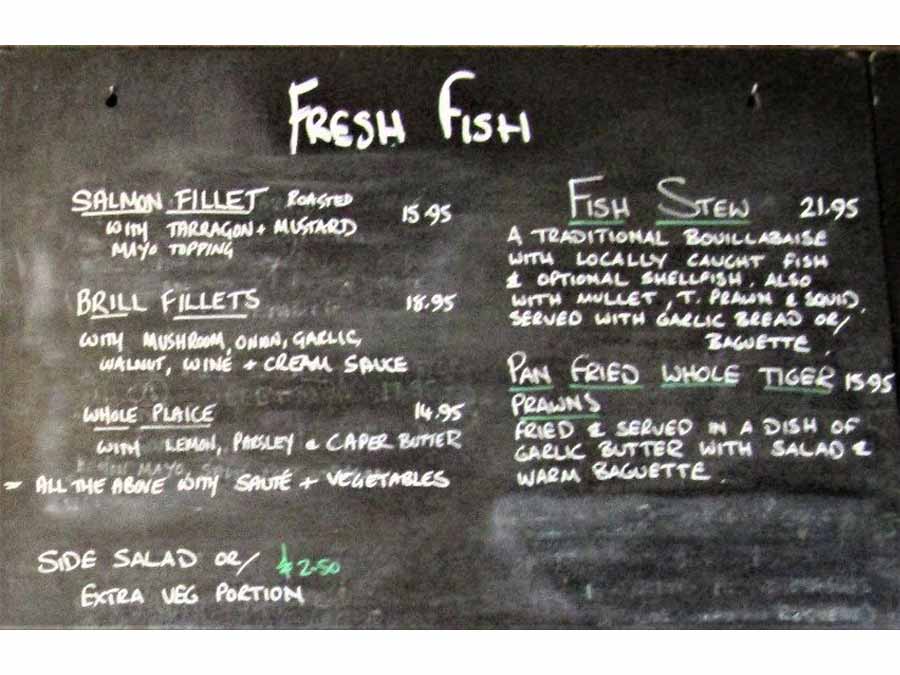 FRESH FISH
SALMON FILLET ROASTED 15.95
WITH TARRAGON + MUSTARD
MAYO TOPPING
BRILL FILLETS 18.95
WITH MUSHROOM, ONION, GARLIC,
WALNUT, WINE + CREAM SAUCE
WHOLE PLAICE 14.95
WITH LEMON, PARSLEY & CAPER BUTTER
= ALL THE ABOVE WITH SAUTÉ + VEGETABLES
SIDE SALAD OR/ £2.50
EXTRA VEG PORTION
FISH STEW 21.95
A TRADITIONAL BOUILLABAISE
WITH LOCALLY CAUGHT FISH
& OPTIONAL SHELLFISH. ALSO
WITH MULLET, T. PRAWN & SQUID.
SERVED WITH GARLIC BREAD OR/
BAGUETTE.
PAN FRIED WHOLE TIGER 15.95
PRAWNS
FRIED & SERVED IN A DISH OF
GARLIC BUTTER WITH SALAD &
WARM BAGUETTE.